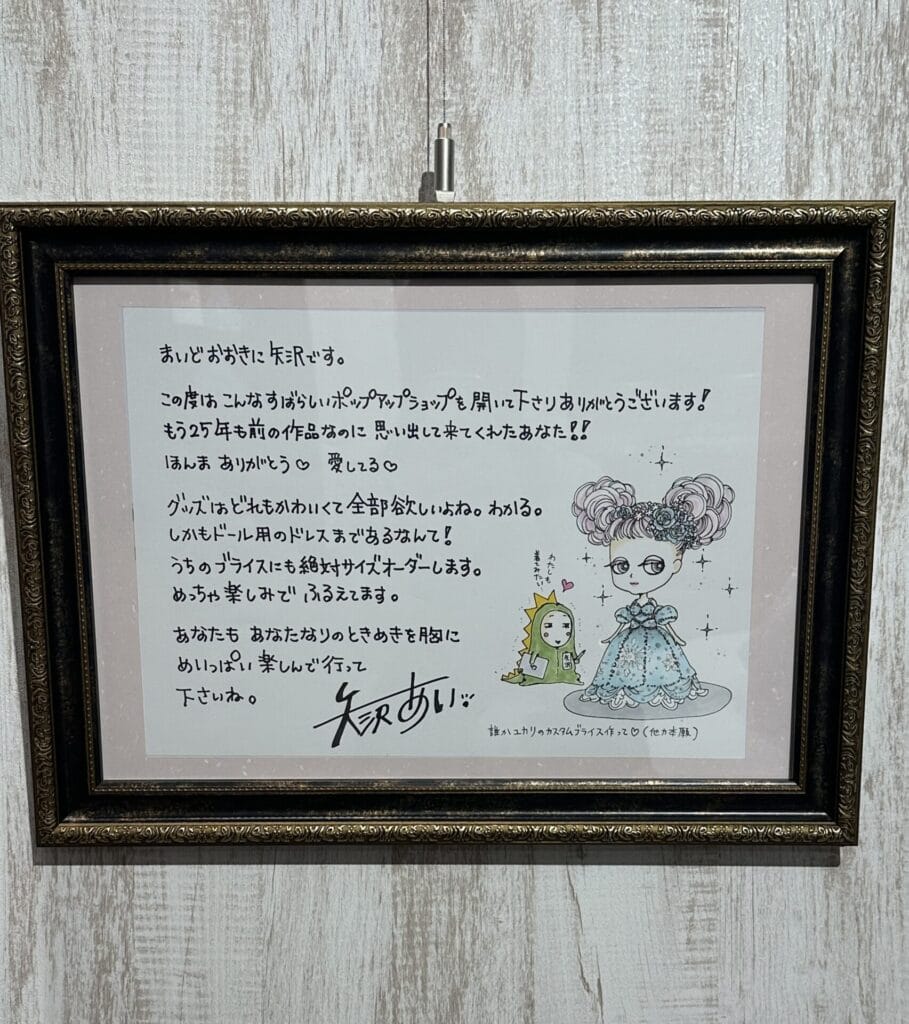 まいどおおきに 矢沢です。
この度は こんなすばらしいポップアップショップを 開いて下さりありがとうございます!
もう25年も前の作品なのに 思い出して来てくれたあなた!!
ほんま ありがとう♡ 愛してる♡
グッズはどれもかわいくて全部欲しいよね。わかる。
しかもドール用のドレスまであるなんて!
うちのブライスにも絶対サイズオーダーします。
めっちゃ楽しみで ふるえてます。
あなたも あなたなりのときめきを胸に
めいっぱい 楽しんで行って
下さいね。
矢沢あい
わたしも
着てみたい
誰かユカリのカスタムブライス作って♡(他力本願)